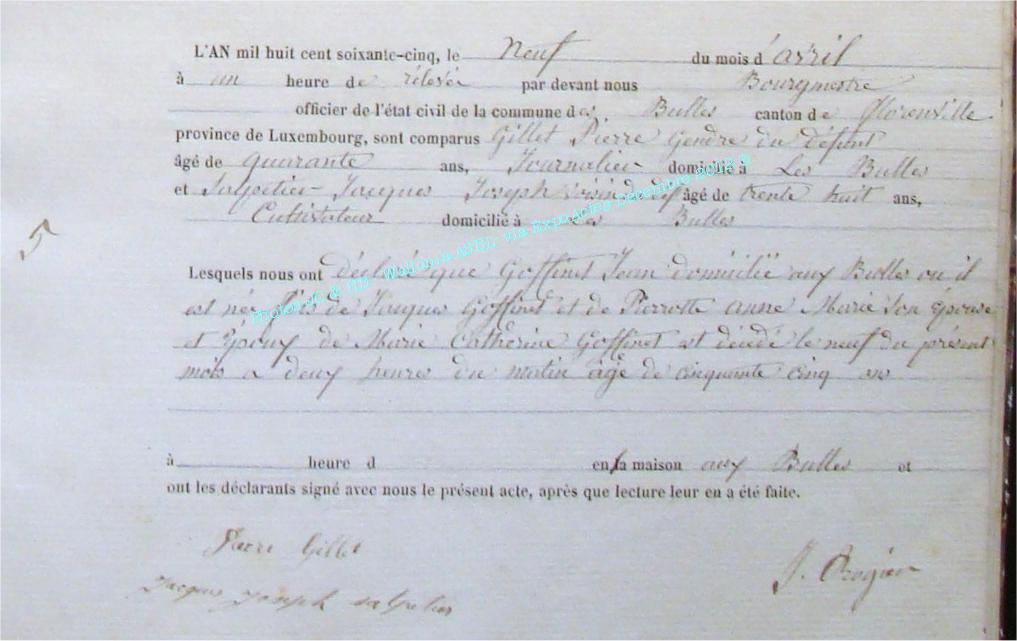 L'AN mil huit cent soixante-cinq, le Neuf du mois d'avril
à un heure de rélevée par devant nous Bourgmestre
officier de l'état civil de la commune des Bulles canton de Florenville
province de Luxembourg, sont comparus Gillet Pierre Gendre du défunt
âgé de quarante ans, Journalier domicilié à Les Bulles
et Salpetier Jacques Joseph voisin du def âgé de trente huit ans,
Cultivateur domicilié à Les Bulles
5
Lesquels nous ont déclaré que Goffinet Jean domicilié aux Bulles ou il
est né fils de Jacques Goffinet et de Pierrotte Anne Marie son épouse
et époux de Marie Catherine Goffinet est décédé le neuf du présent
mois a deux heures du matin âgé de cinquante cinq ans
à heure d en sa maison aux Bulles et
ont les déclarants signé avec nous le présent acte, après que lecture leur en a été faite.
Pierre Gillet
Jacques Joseph salpetier